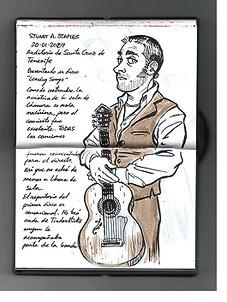 STUART A. STAPLES
20-01-2007
Auditorio de Santa Cruz de
Tenerife
Presentando su disco
"Leaving Songs"
Como de costumbre, la
acústica de la sala de
cámara es mala
malísima, pero el
concierto fue
excelente. TODAS
las canciones
fueron
para el directo,
así que no eché de
menos a Lhasa de
Sela.
El repertorio del
primer disco es
sensacional. No tocó
nada de Tindersticks
aunque le
acompañaba
parte de la banda